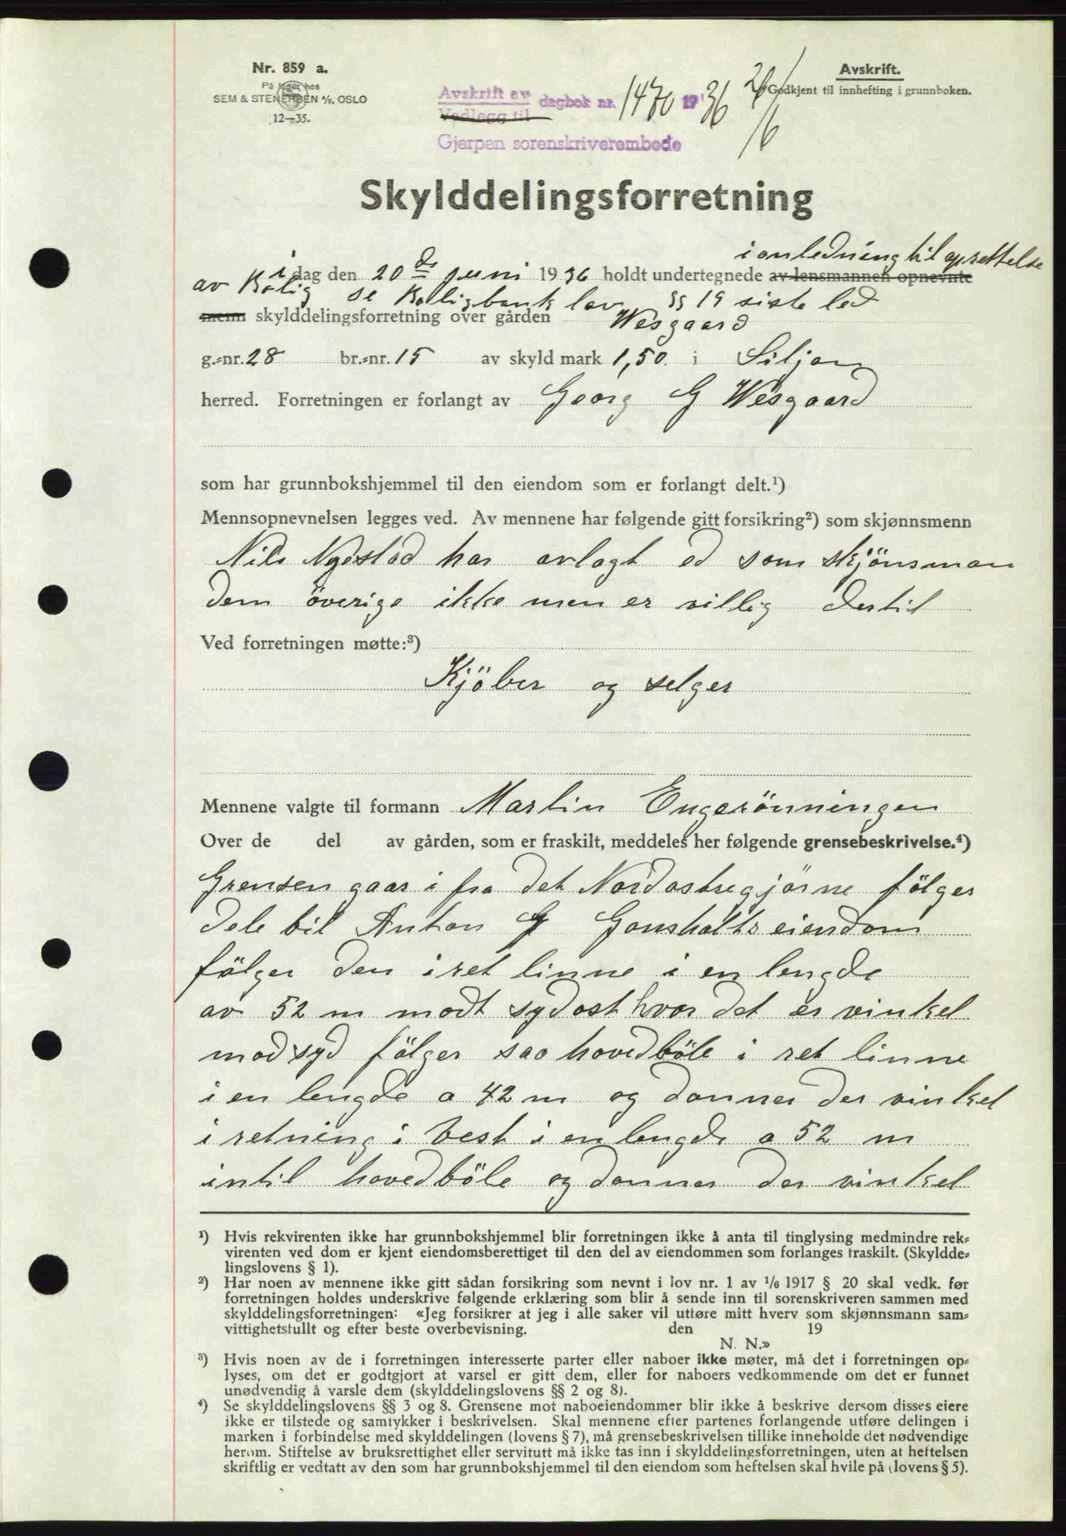 Nr. 859 a.
På lager hos
SEM & STENERSEN A/S, OSLO
12—35.
Avskrift av dagbok nr. 1470 1936 20/6
Vedlegg til
Gjerpen sorenskriverembede
Avskrift.
Godkjent til innhefting i grunnboken.
Skylddelingsforretning
i anledning til oprettelse
i dag den 20de juni 1936 holdt undertegnede av lensmannen opnevnte
av Bolig se Boligbank lov §§ 19 siste led
menn skylddelingsforretning over gården Wesgaard
g.-nr. 28 br.-nr. 15 av skyld mark 1,50 i Siljan
herred. Forretningen er forlangt av Georg G Wesgaard
som har grunnbokshjemmel til den eiendom som er forlangt delt.¹)
Mennsopnevnelsen legges ved. Av mennene har følgende gitt forsikring²) som skjønnsmenn
Nils Nyestad har avlagt ed som skjönsman
dem överige ikke men er villig dertil
Ved forretningen møtte:³)
Kjöber og selger
Mennene valgte til formann Martin Engerönningen
Over de del av gården, som er fraskilt, meddeles her følgende grensebeskrivelse.⁴)
Grensen gaar i fra det Nordostre gjörne fölger
dele bil Anton G Gonsholts eiendom
fölger den i ret linne i en lengde
av 52 m modt sydost hvor det er vinkel
mod syd fölger saa hovedböle i ret linne
i en lengde a 42 m og danner der vinkel
i retning i Vest i en lengde a 52 m
intil hovedböle og danner der vinkel
¹) Hvis rekvirenten ikke har grunnbokshjemmel blir forretningen ikke å anta til tinglysing medmindre rek-
virenten ved dom er kjent eiendomsberettiget til den del av eiendommen som forlanges fraskilt. (Skyldde-
lingslovens § 1).
²) Har noen av mennene ikke gitt sådan forsikring som nevnt i lov nr. 1 av 1/6 1917 § 20 skal vedk. før
forretningen holdes underskrive følgende erklæring som blir å sende inn til sorenskriveren sammen med
skylddelingsforretningen: «Jeg forsikrer at jeg i alle saker vil utføre mitt hverv som skjønnsmann sam-
vittighetsfullt og efter beste overbevisning. den 19
N. N.»
³) Hvis noen av de i forretningen interesserte parter eller naboer ikke møter, må det i forretningen op-
lyses, om det er godtgjort at varsel er gitt dem, eller for naboers vedkommende om det er funnet
unødvendig å varsle dem (skylddelingslovens §§ 2 og 8).
⁴) Se skylddelingslovens §§ 3 og 8. Grensene mot naboeiendommer blir ikke å beskrive dersom disses eiere
ikke er tilstede og samtykker i beskrivelsen. Skal mennene efter partenes forlangende utføre delingen i
marken i forbindelse med skylddelingen (lovens § 7), må grensebeskrivelsen tillike inneholde det nødvendige
herom. Stiftelse av bruksrettighet eller servitutt må ikke tas inn i skylddelingsforretningen, uten at heftelsen
skriftlig er vedtatt av den som har grunnbokshjemmel til den eiendom som heftelsen skal hvile på (lovens § 5).